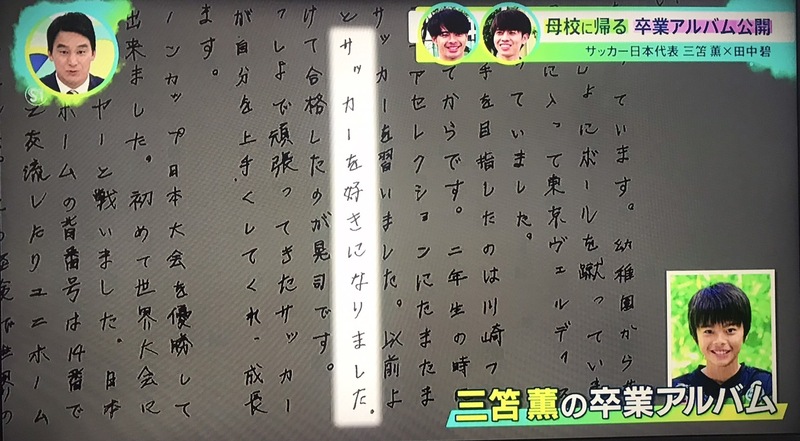 母校に帰る 卒業アルバム公開
サッカー日本代表 三笘 薫×田中 碧
ています。幼稚園からサ
しょにボールを蹴っていま
に入って東京ヴェルディ
ていました。
手を目指したのは川崎フ
てからです。二年生の時
アセレクションにたまたま
サッカーを習いました。以前よ
とサッカーを好きになりました。
けて合格したのが晃司です。
っしょで頑張ってきたサッカー
が自分を上手くしてくれ、成長
ます。
ーンカップ日本大会を優勝して
出来ました。初めて世界大会に
ヤーと戦いました。日本
ホームの背番号は14番で
と交流したりユニホーム
三笘 薫の卒業アルバム